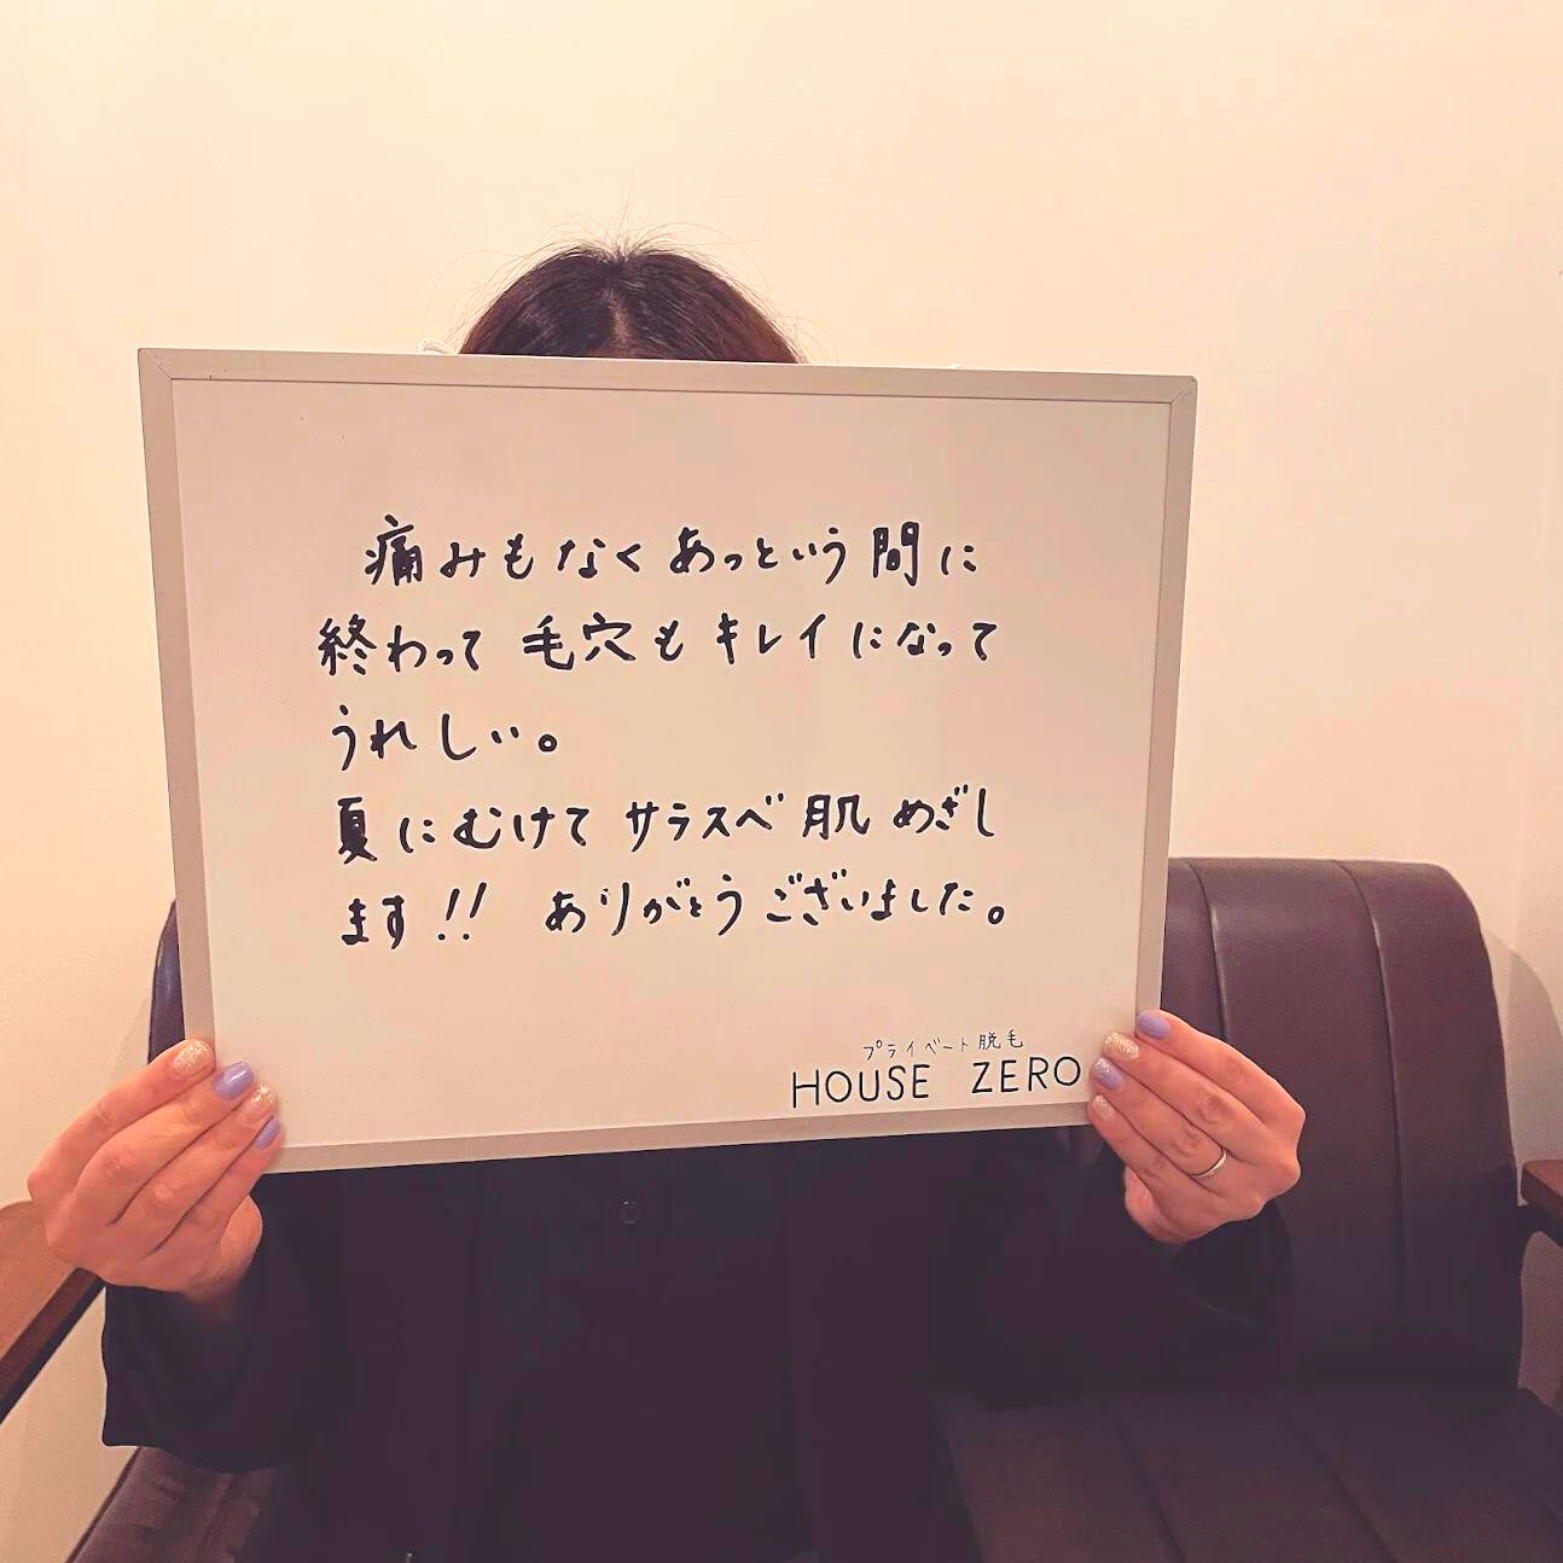 痛みもなくあっという間に
終わって毛穴もキレイになって
うれしい。
夏にむけてサラスベ肌めざし
ます!! ありがとうございました。
プライベート脱毛
HOUSE ZERO